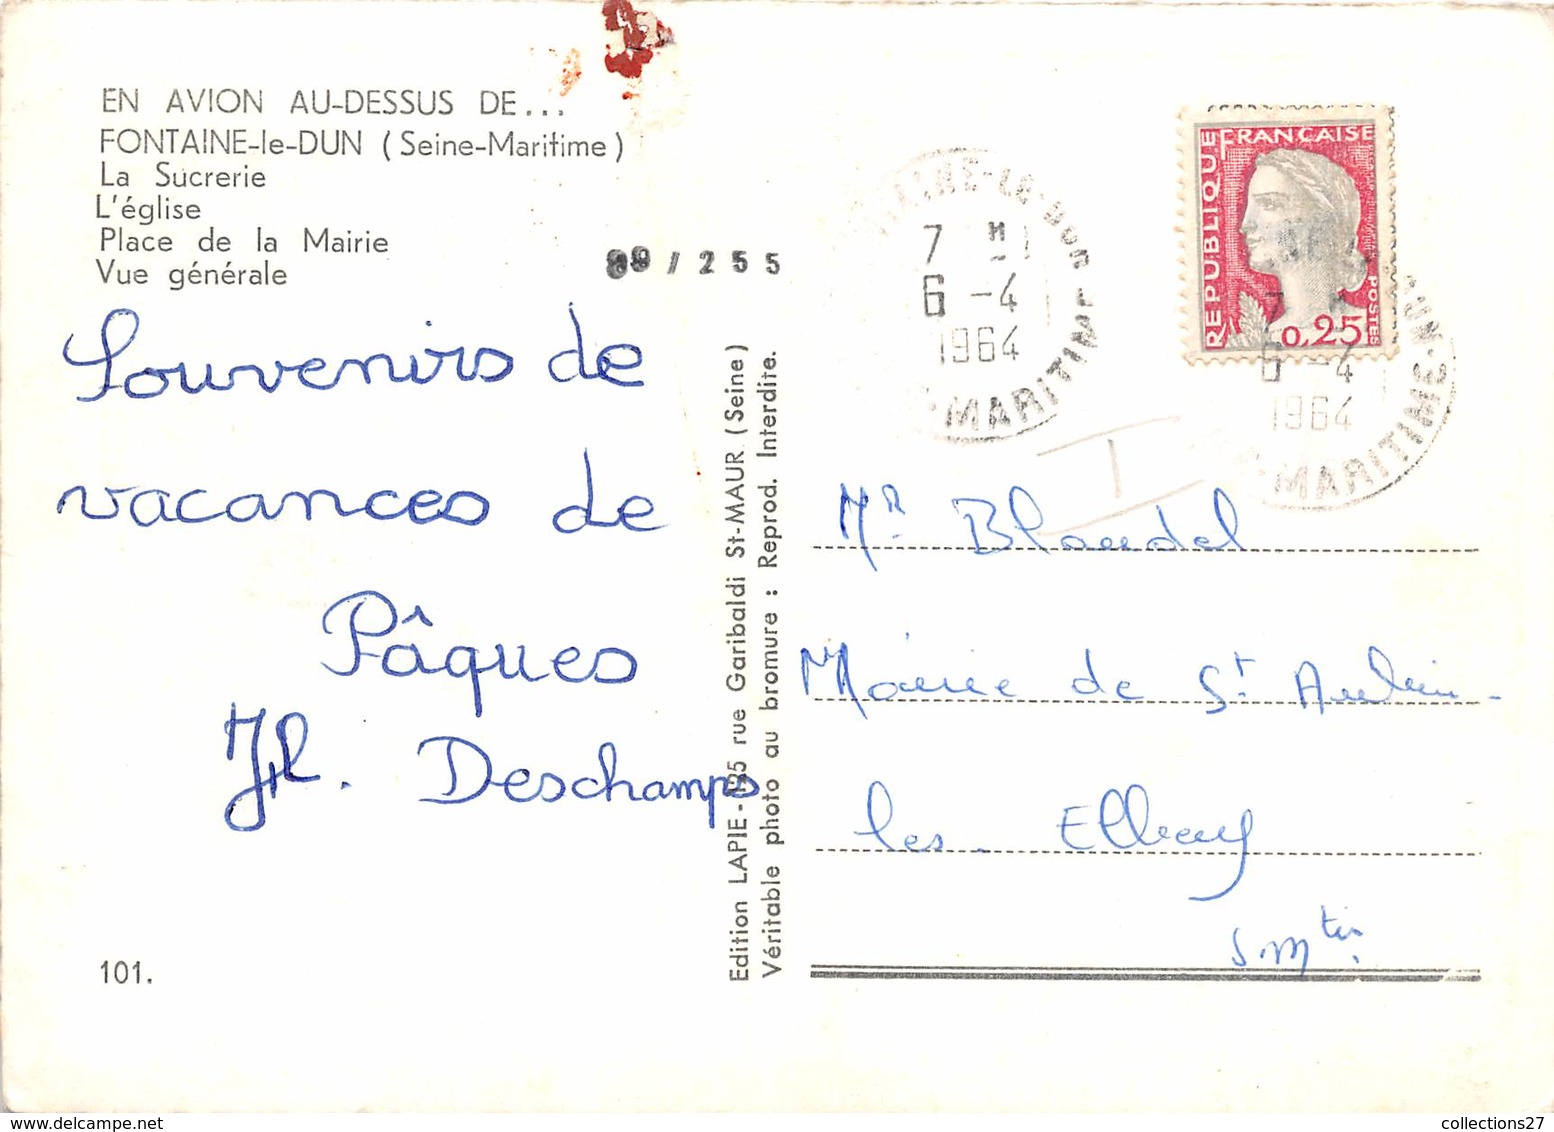 EN AVION AU-DESSUS DE...
FONTAINE-le-DUN (Seine-Maritime)
La Sucrerie
L'église
Place de la Mairie
Vue générale
/ 2 5 5
Souvenirs de
vacances de
Pâques
Deschamps
101.
Edition LAPIE - 125 rue Garibaldi St-MAUR (Seine)
Véritable photo au bromure : Reprod. Interdite.
7 M
6 -4
1964
MARITIME
REPUBLIQUE
FRANÇAISE
POSTES
0,25
6 -4
1964
MARITIME
Mr Blondel
Mairie de St Aubin-
les-
S.Mtie.
collections27